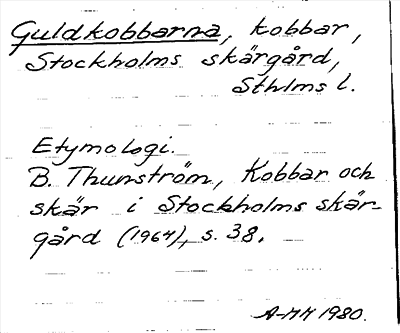 Guldkobbarna, kobbar,
Stockholms skärgård,
Sthlms l.
Etymologi.
B. Thunström, Kobbar och
skär i Stockholms skär-
gård (1964), s. 38.
A-MM 1980.